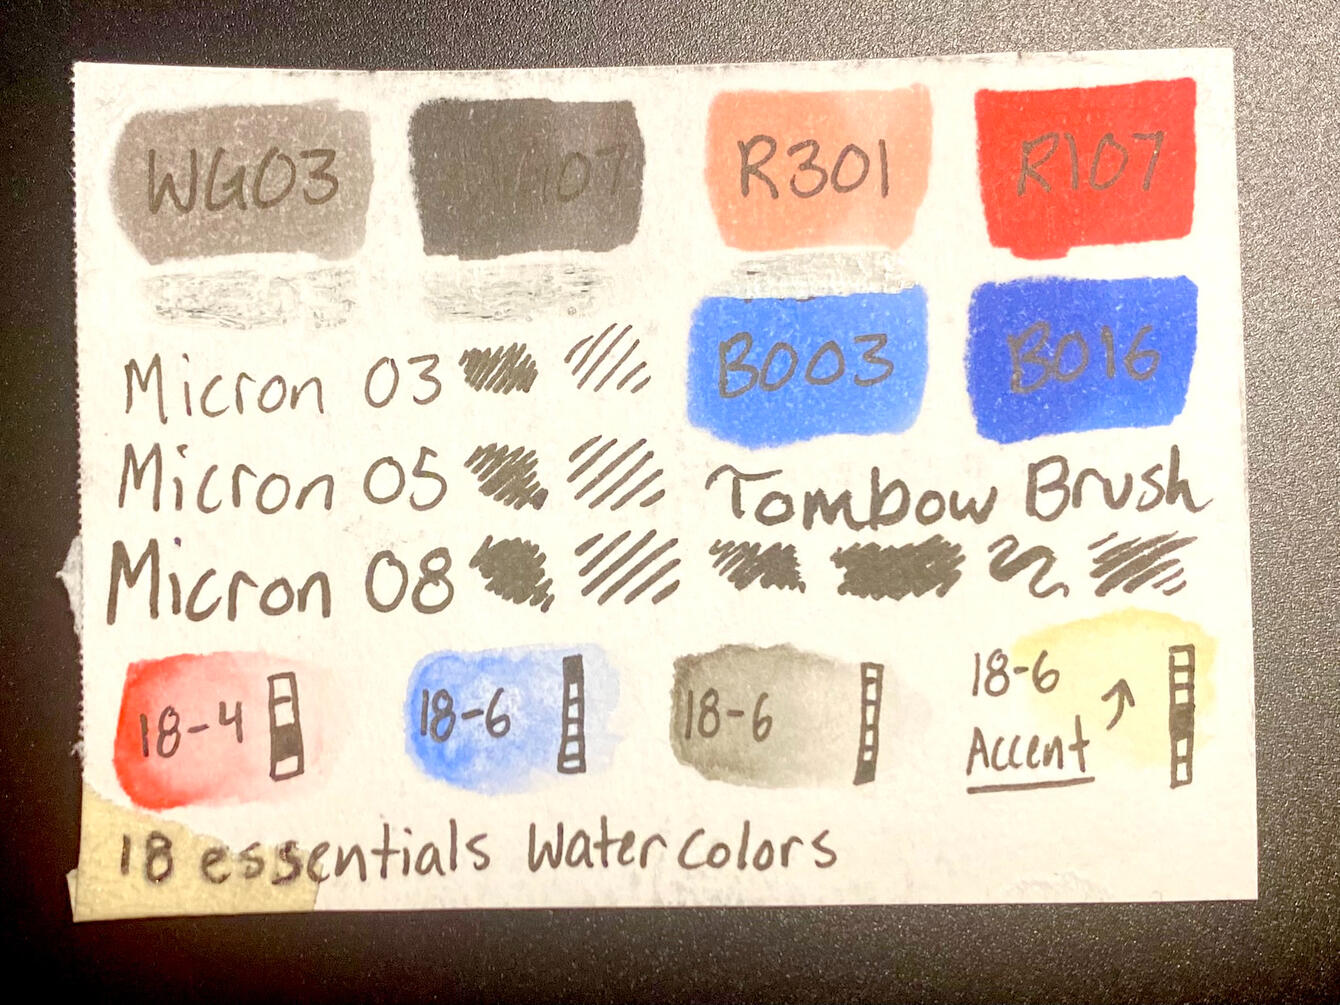 WG03 07 R301 R107
B003 B016
Micron 03
Micron 05
Micron 08
Tombow Brush
18-4 18-6 18-6 18-6
Accent
18 essentials Watercolors